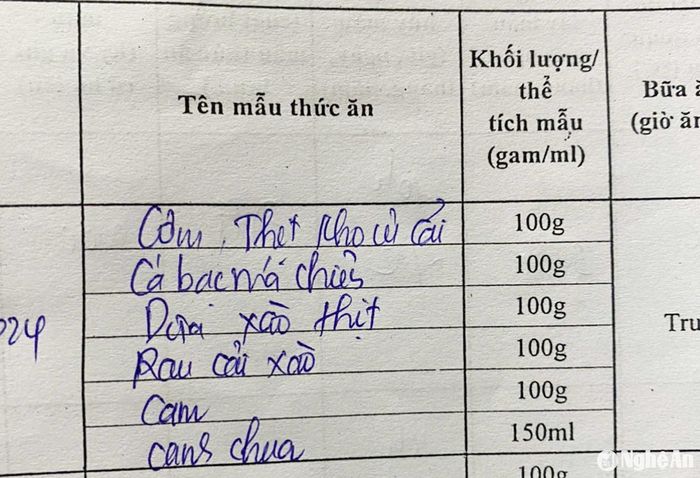 Tên mẫu thức ăn
Khối lượng/
thể
tích mẫu
(gam/ml)
Bữa ă
(giờ ăn
024
Cơm, Thịt kho củ cải
100g
Cá bạc má chiên
100g
Dưa xào thịt
100g
Tru
Rau cải xào
100g
Cam
100g
canh chua
150ml
100g
Nghệ An